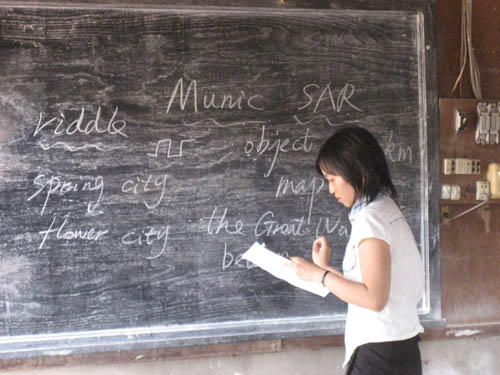 Munic SAR
riddle
object km
spring city
map
flower city
the Great Wa
be